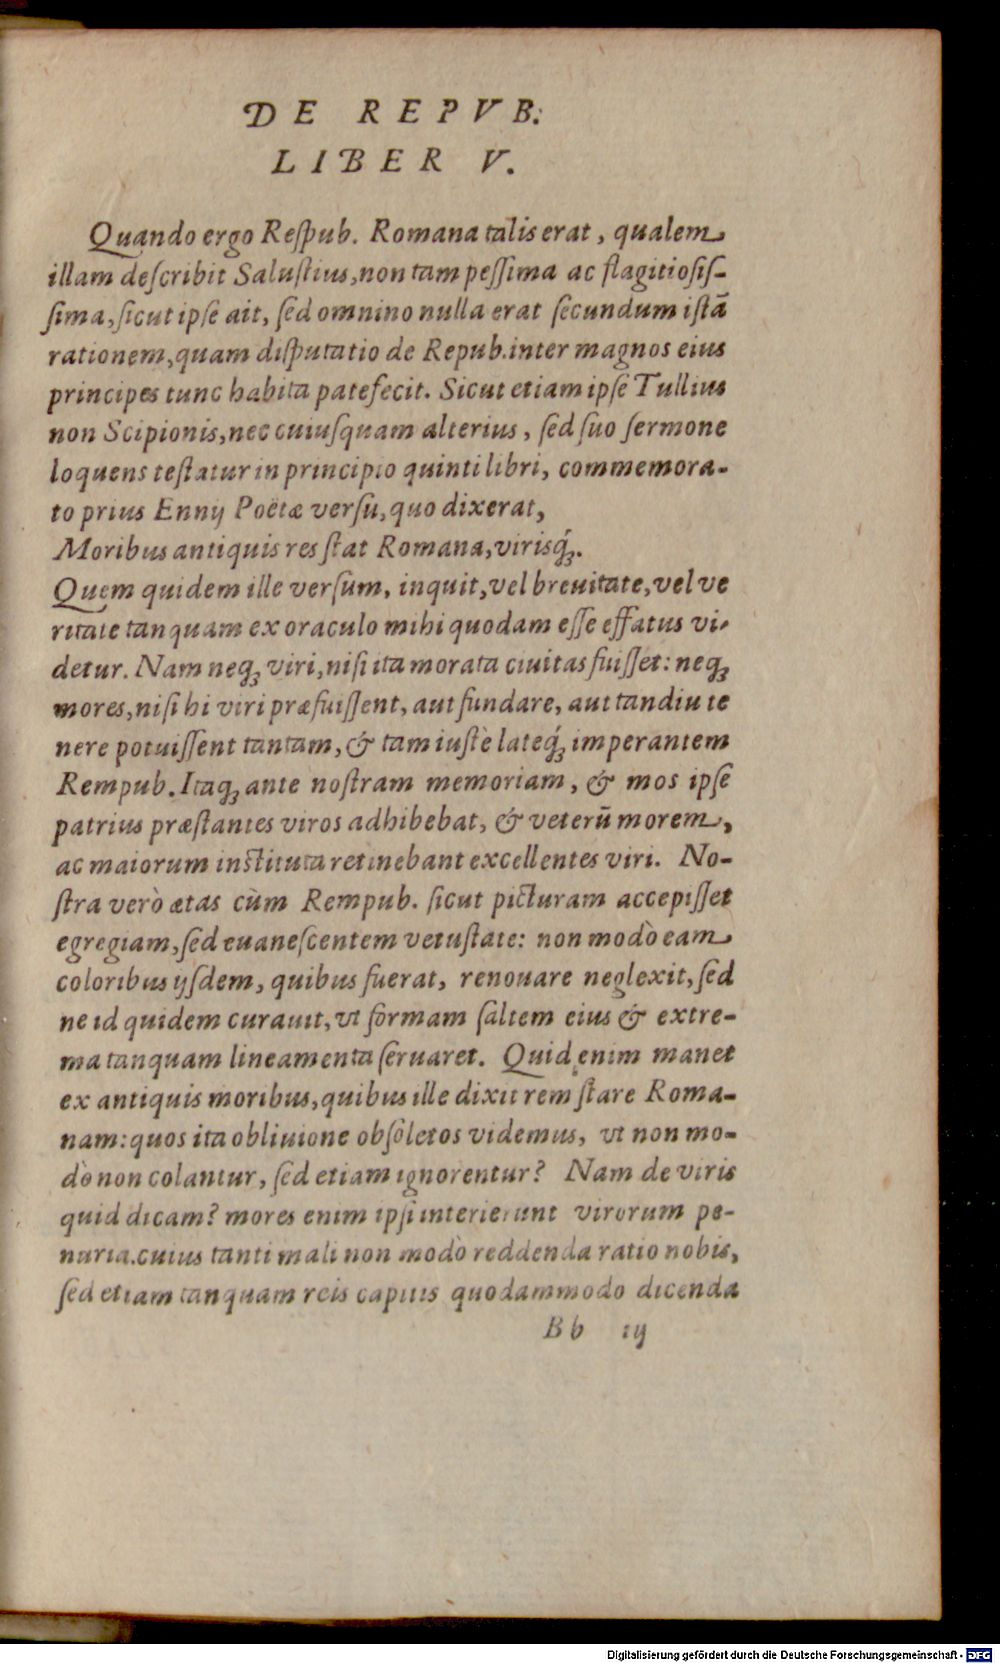 DE REPVB.
LIBER V.
Quando ergo Reſpub. Romana talis erat, qualem
illam deſcribit Saluſtius, non tam peſſima ac flagitioſiſ-
ſima, ſicut ipſe ait, ſed omnino nulla erat ſecundum iſtã
rationem, quam diſputatio de Repub. inter magnos eius
principes tunc habita patefecit. Sicut etiam ipſe Tullius
non Scipionis, nec cuiuſquam alterius, ſed ſuo ſermone
loquens teſtatur in principio quinti libri, commemora-
to prius Ennij Poëtæ verſu, quo dixerat,
Moribus antiquis res ſtat Romana, virisq́;.
Quem quidem ille verſum, inquit, vel breuitate, vel ve
ritate tanquam ex oraculo mihi quodam eſſe effatus vi-
detur. Nam neq; viri, niſi ita morata ciuitas fuiſſet: neq;
mores, niſi hi viri præfuiſſent, aut fundare, aut tandiu te
nere potuiſſent tantam, & tam iuſtè lateq́; imperantem
Rempub. Itaq; ante noſtram memoriam, & mos ipſe
patrius præſtantes viros adhibebat, & veterũ morem,
ac maiorum inſtituta retinebant excellentes viri. No-
ſtra verò ætas cùm Rempub. ſicut picturam accepiſſet
egregiam, ſed euaneſcentem vetuſtate: non modò eam
coloribus ijſdem, quibus fuerat, renouare neglexit, ſed
ne id quidem curauit, vt formam ſaltem eius & extre-
ma tanquam lineamenta ſeruaret. Quid enim manet
ex antiquis moribus, quibus ille dixit rem ſtare Roma-
nam: quos ita obliuione obſoletos videmus, vt non mo-
dò non colantur, ſed etiam ignorentur? Nam de viris
quid dicam? mores enim ipſi interierunt virorum pe-
nuria. cuius tanti mali non modò reddenda ratio nobis,
ſed etiam tanquam reis capitis quodammodo dicenda
Bb iij
Digitalisierung gefördert durch die Deutsche Forschungsgemeinschaft - DFG